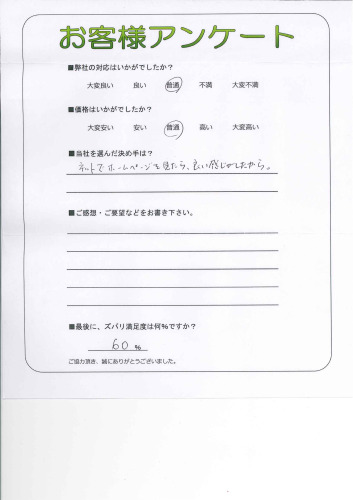 お客様アンケート
■弊社の対応はいかがでしたか？
大変良い 良い 普通 不満 大変不満
■価格はいかがでしたか？
大変安い 安い 普通 高い 大変高い
■当社を選んだ決め手は？
ネットでホームページを見たら、良い感じがしたから。
■ご感想・ご要望などをお書き下さい。
■最後に、ズバリ満足度は何％ですか？
60 ％
ご協力頂き、誠にありがとうございました。